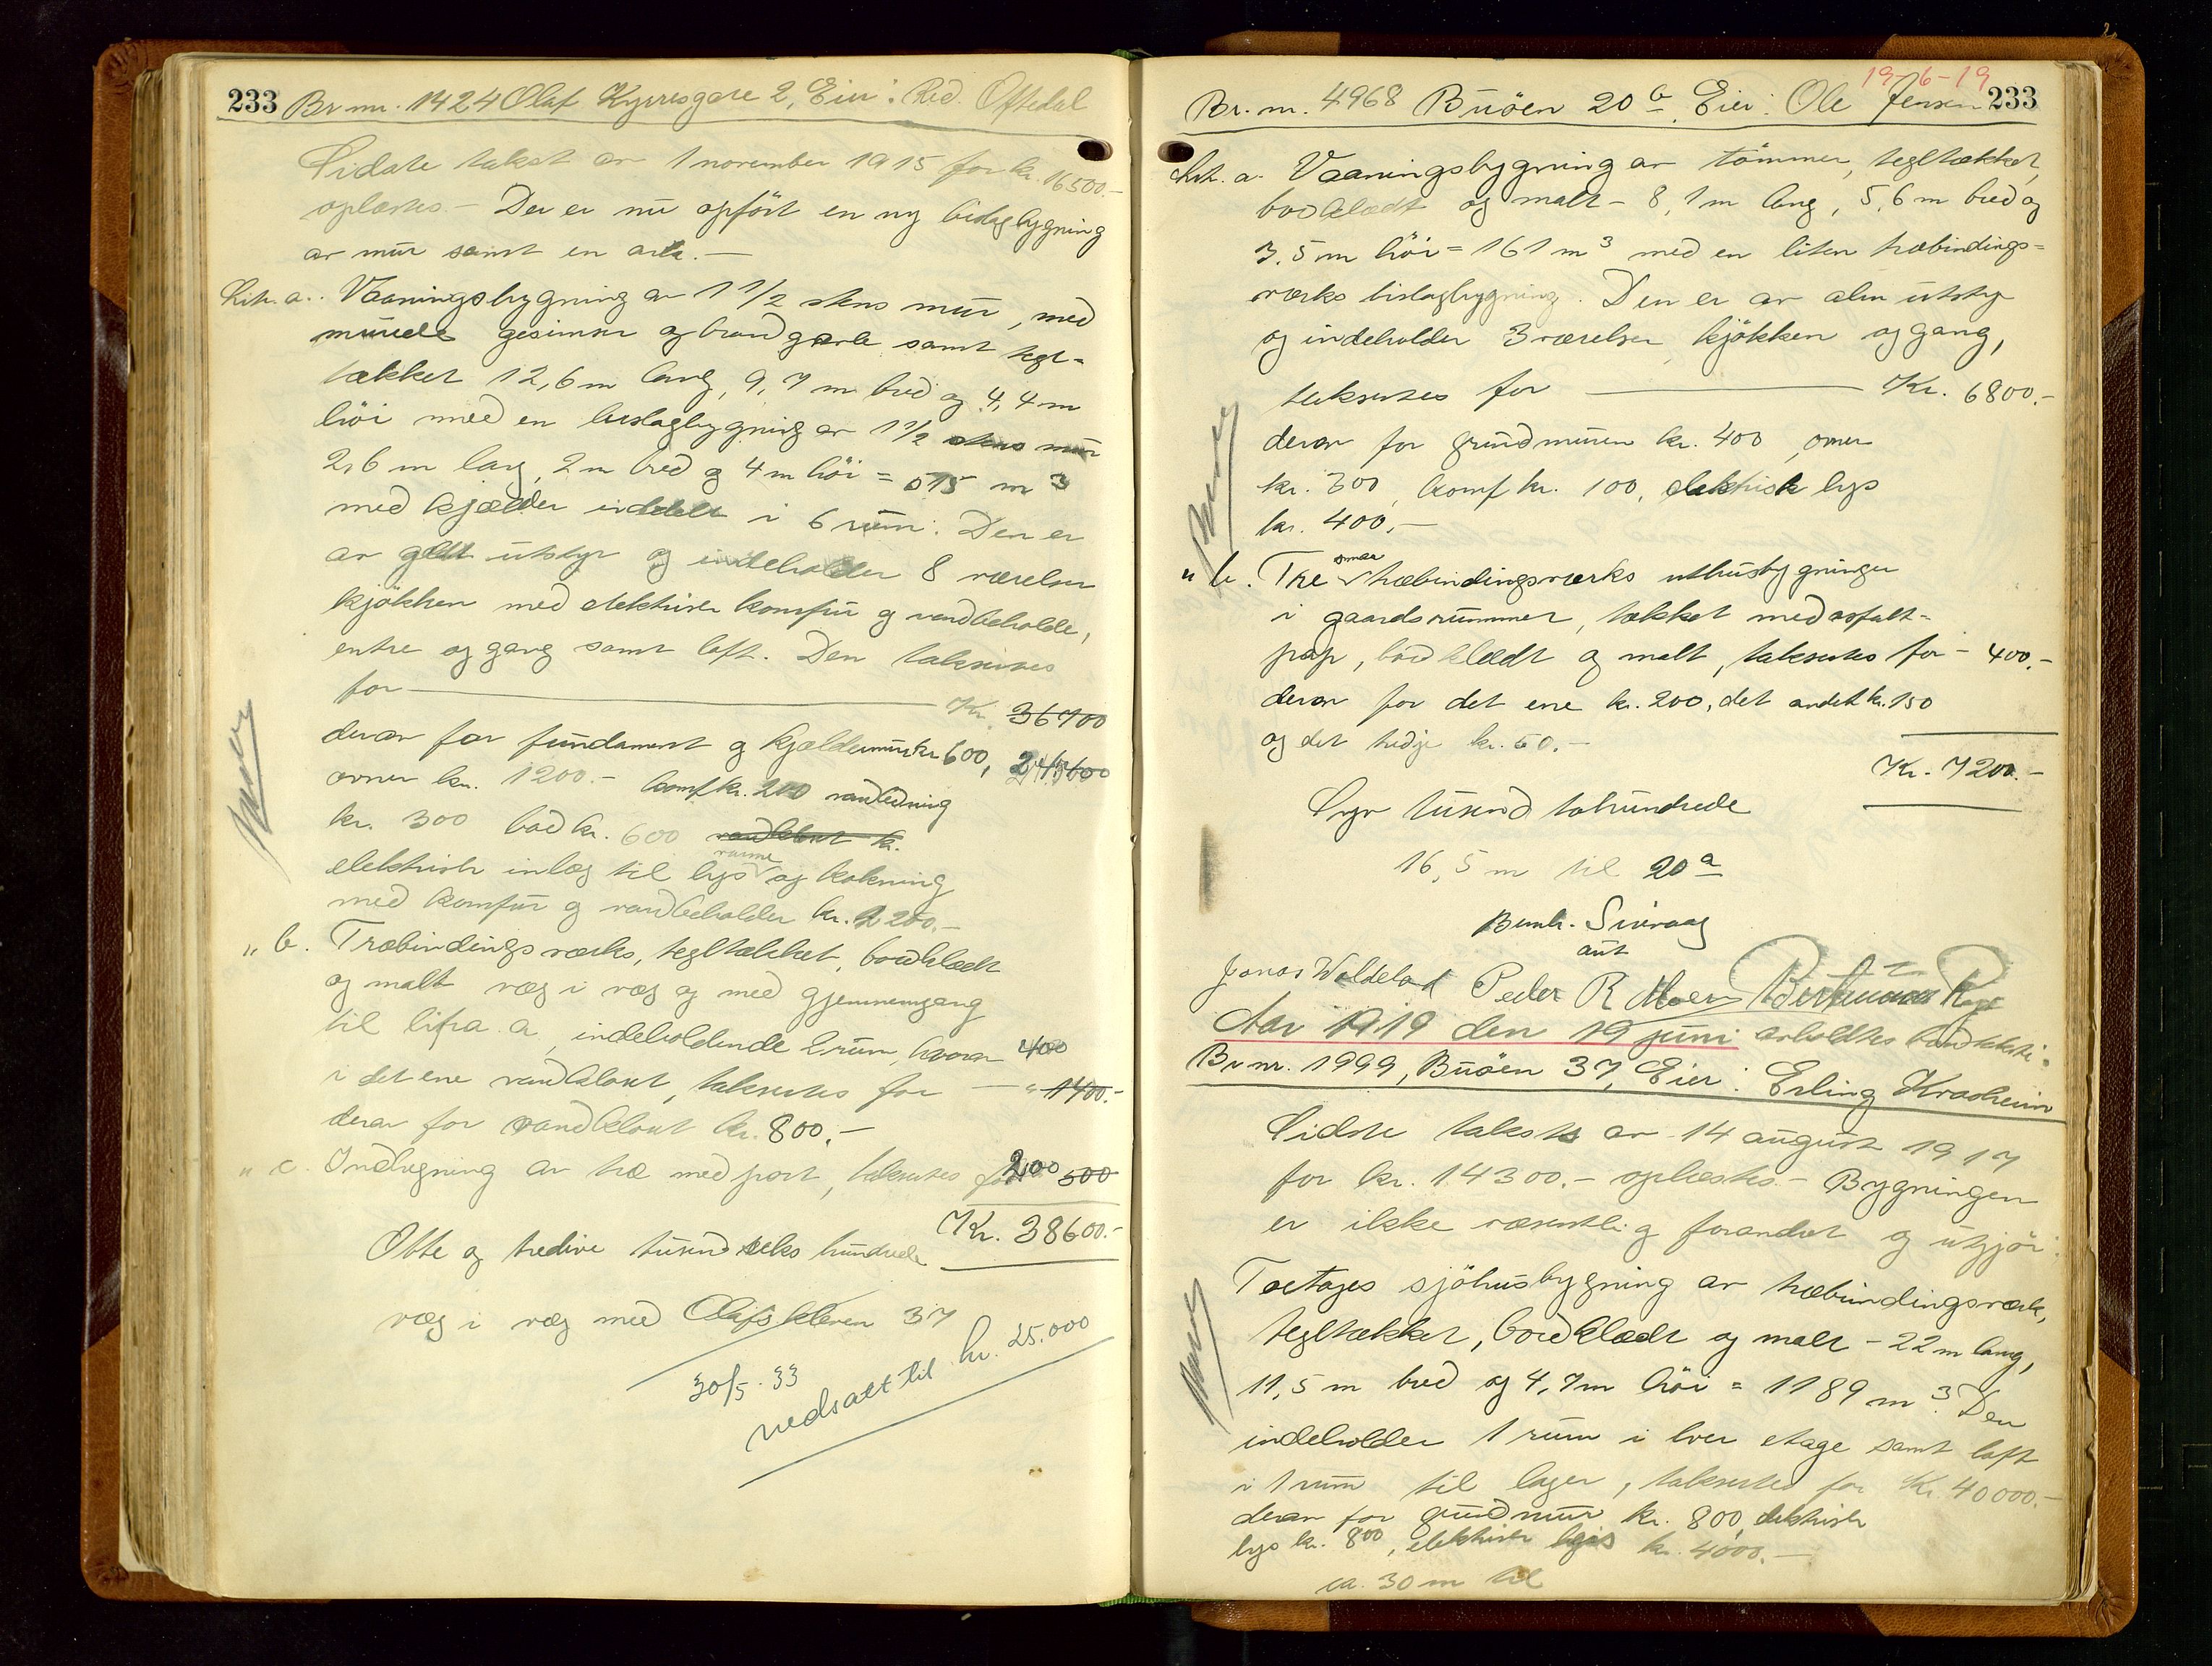 233 Br nr. 1424 Olaf Kyrresgate 2, Eier: Red. Oftedal
Sidste takst av 1 november 1915 for kr. 16500.-
oplæstes.- Der er nu opført en ny bislagbygning
av mur samt en ark.-
Litr. a. Vaaningsbygning av 1 1/2 stens mur, med
murede gesimser og brandgavle samt tegl-
tækket 12,6 m lang, 9,7 m bred og 4,4 m
høi med en bislagbygning av 1 1/2 stens mur
2,6 m lang, 2 m bred og 4 m høi = 575 m3
med kjælder inddelt i 6 rum. Den er
av godt utstyr og indeholder 8 værelser
kjøkken med elektrisk komfur og vandbeholder,
entre og gang samt loft. Den takseres
for Kr. 36700
derav for fundament og kjældermur kr 600, 24500
ovner kr. 1200.- komf kr. 200 vandledning
kr. 300 bad kr. 600 vandklosset kr.
elektrisk inlæg til lys varme og kokning
med komfur og vandbeholder kr. 2200.-
" b. Træbindingsværks, tegltækket, bordklædt
og malt væg i væg og med gjennemgang
til litra a, indeholdende 2 rum, hvorav 400
i det ene vandkloset, takseres for - " 1400.-
derav for vandkloset kr. 800.-
" c. Indhegning av træ med port, takseres for 200 500
Kr. 38600.-
Otte og tredive tusind seks hundrede
væg i væg med Olafskleven 37
30/5.33
nedsatt til kr. 25.000
19-6-19
Br. nr. 4968 Buöen 20 b, Eier: Ole Jensen 233
Litr. a. Vaaningsbygning av tömmer, tegltækket,
bordklædt og malt - 8,1 m lang, 5,6 m bred og
3,5 m höi = 161 m3 med en liten træbindings-
værks bislagbygning. Den er av alm utstyr
og indeholder 3 værelser, kjökken og gang,
takseres for Kr. 6800.-
derav for grundmuren kr. 400, ovner
kr. 300, komf kr. 100, elektrisk lys
kr. 400.-
" b. Tre smaa træbindingsværks uthusbygninger
i gaardsrummet, tækket med asfalt-
pap, bordklædt og malt, takseres for - 400.-
derav for det ene kr. 200, det andet kr. 150
og det tredje kr. 50.-
Kr. 7200.-
Syv tusind tohundrede
16,5 m til 20 a
Bernh. Sivraag
aut
Jonas Waldeland Peder R Moen
Aar 1919 den 19 juni avholdtes brandtakst i:
Br nr. 1999, Buöen 37, Eier: Erling Krosheim
Sidste takst av 14 august 1917
for kr. 14300.- oplæstes.- Bygningen
er ikke væsentlig forandret og utgjör:
Toetages sjöhusbygning av træbindingsværk,
tegltækket, bordklædt og malt - 22 m lang,
11,5 m bred og 4,7 m höi = 1189 m3. Den
indeholder 1 rum i hver etage samt loft
i 1 rum til lager, takseres for Kr. 40000.-
derav for grundmur kr. 800, elektrisk
lys kr. 800, elektrisk kr. 4000.-
ca. 30 m til